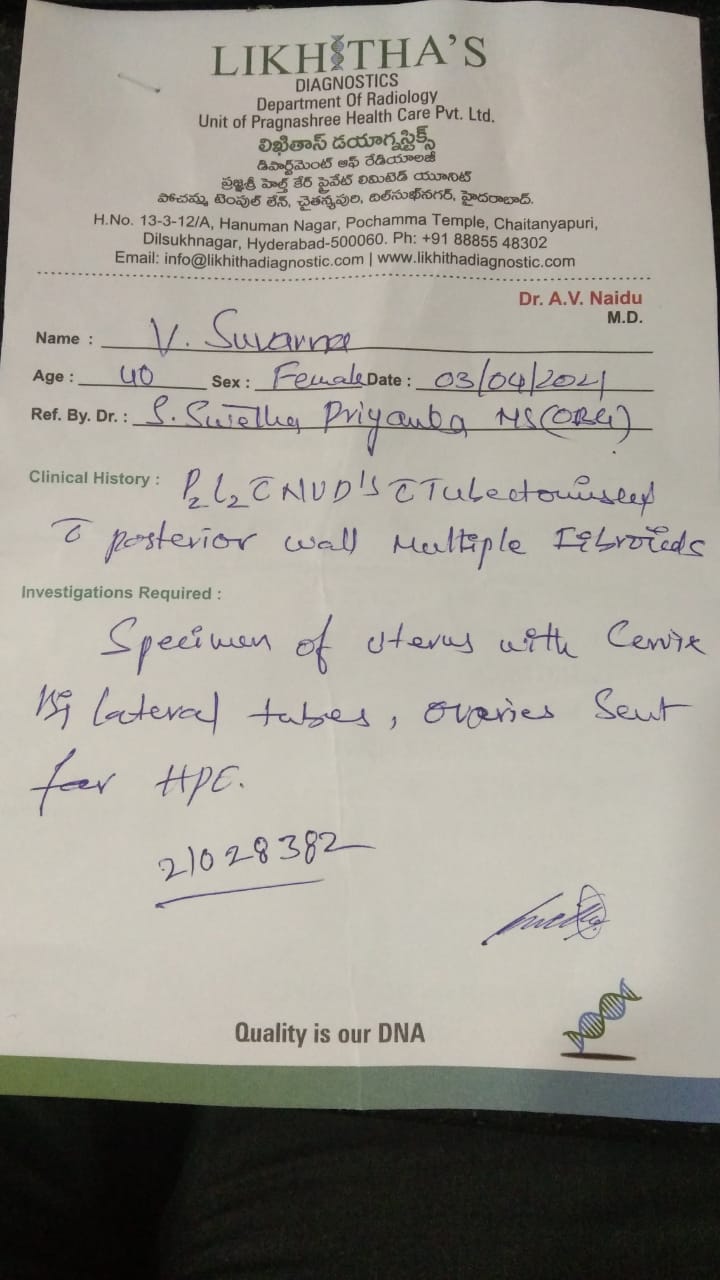 LIKHITHA'S
DIAGNOSTICS
Department Of Radiology
Unit of Pragnashree Health Care Pvt. Ltd.
లిఖితాస్ డయాగ్నస్టిక్స్
డిపార్ట్‌మెంట్ ఆఫ్ రేడియాలజీ
ప్రజ్ఞశ్రీ హెల్త్ కేర్ ప్రైవేట్ లిమిటెడ్ యూనిట్
పోచమ్మ టెంపుల్ లేన్, చైతన్యపురి, దిల్‌సుఖ్‌నగర్, హైదరాబాద్.
H.No. 13-3-12/A, Hanuman Nagar, Pochamma Temple, Chaitanyapuri,
Dilsukhnagar, Hyderabad-500060. Ph: +91 88855 48302
Email: info@likhithadiagnostic.com | www.likhithadiagnostic.com
Dr. A.V. Naidu
M.D.
Name : V. Suvarna
Age : 40 Sex : Female Date : 03/04/2021
Ref. By. Dr. : S. Swetha Priyanka MS(OBG)
Clinical History : P₂L₂ c̄ NVD's c̄ Tubectomised
c̄ posterior wall Multiple Fibroids
Investigations Required :
Specimen of uterus with Cervix
Bilateral tubes, ovaries Sent
for HPE.
21028382
Quality is our DNA